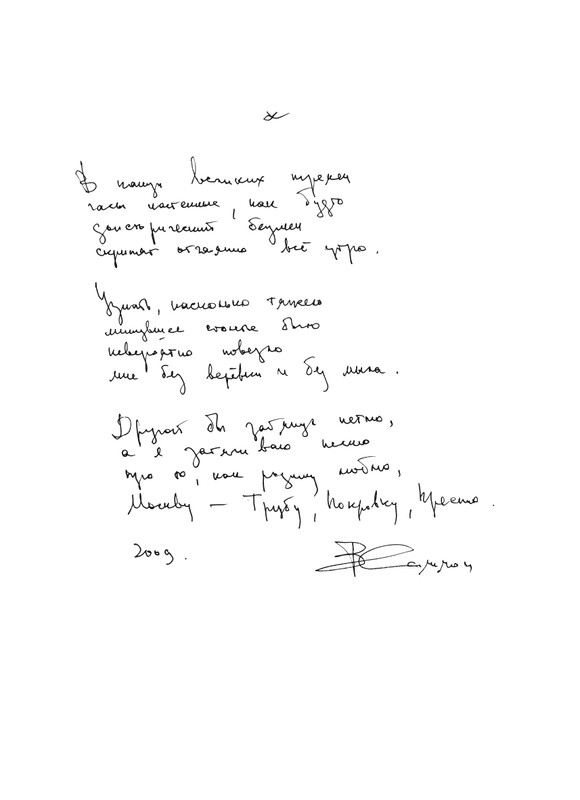 *
В канун великих перемен
часы настенные, как будто
доисторический безмен
скрипят отчаянно всё утро.

Узнать, насколько тяжело
минувшее столетье было
невероятно повезло
мне без верёвки и без мыла.

Другой бы затянул петлю,
а я затягиваю песню
про то, как родину люблю,
Москву — Трубу, Покровку, Пресню.

2009.